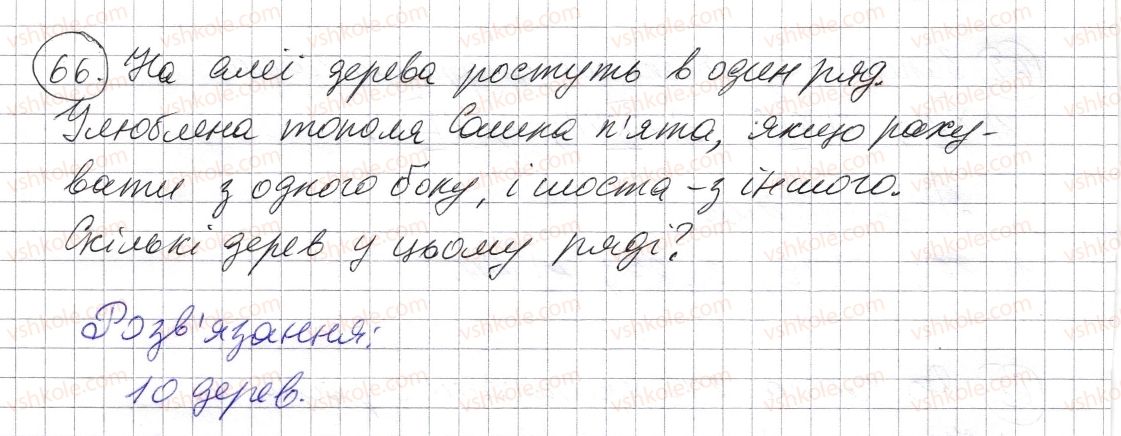 66. На алеї дерева ростуть в один ряд.
Улюблена тополя Сашка п'ята, якщо раху-
вати з одного боку, і шоста - з іншого.
Скількі дерев у цьому ряді?
Розв'язання:
10 дерев.